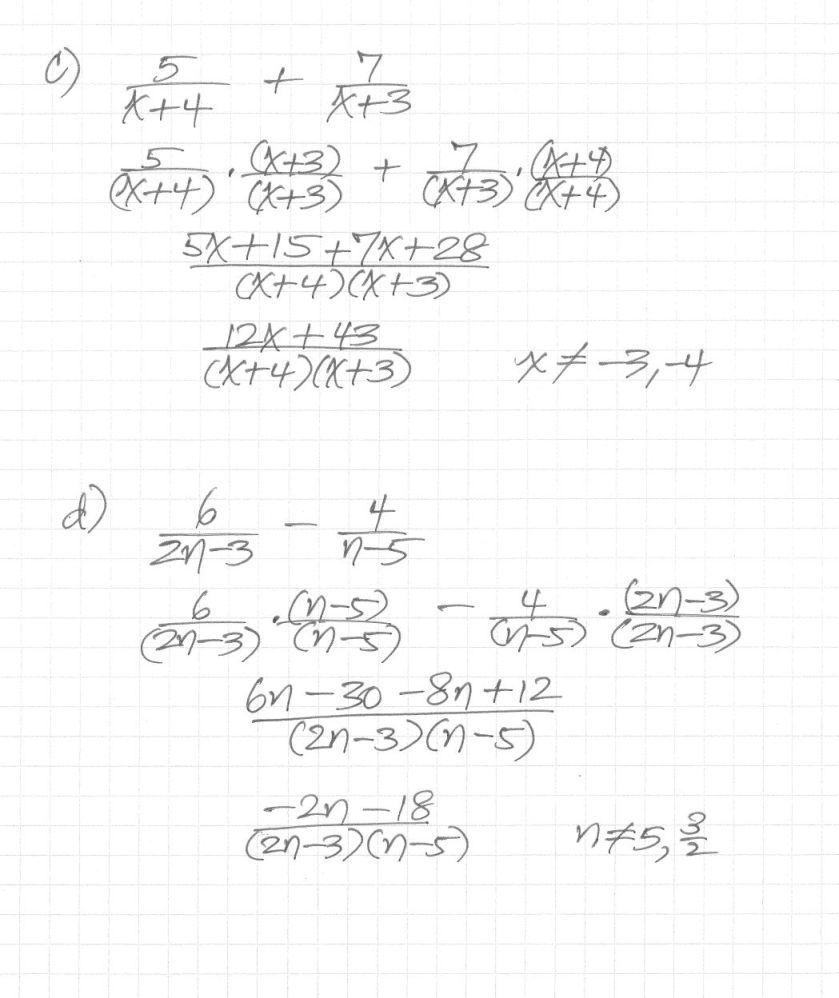 c) 5/(x+4) + 7/(x+3)
5/(x+4) · (x+3)/(x+3) + 7/(x+3) · (x+4)/(x+4)
5x+15+7x+28/(x+4)(x+3)
12x+43/(x+4)(x+3) x≠-3,-4
d) 6/(2n-3) - 4/(n-5)
6/(2n-3) · (n-5)/(n-5) - 4/(n-5) · (2n-3)/(2n-3)
6n-30-8n+12/(2n-3)(n-5)
-2n-18/(2n-3)(n-5) n≠5, 3/2